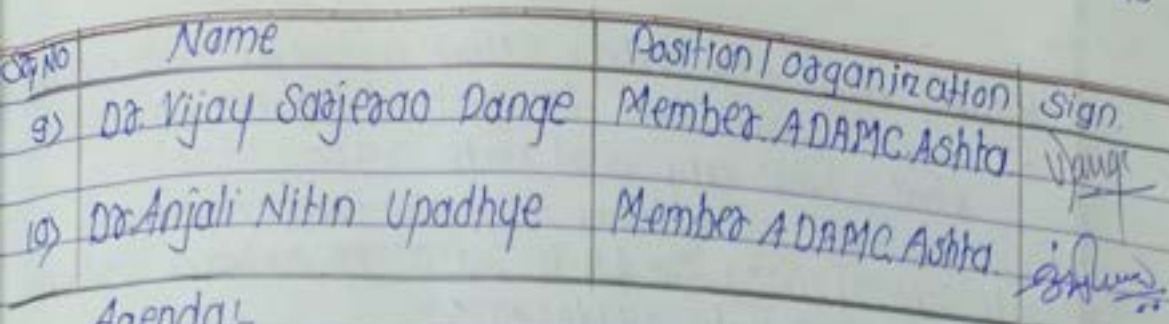 Sr, No Name Position / organization Sign.
9) Dr. Vijay Sarjerao Dange Member ADAMC Ashta
10) Dr. Anjali Nitin Upadhye Member ADAMC, Ashta.
Agenda: